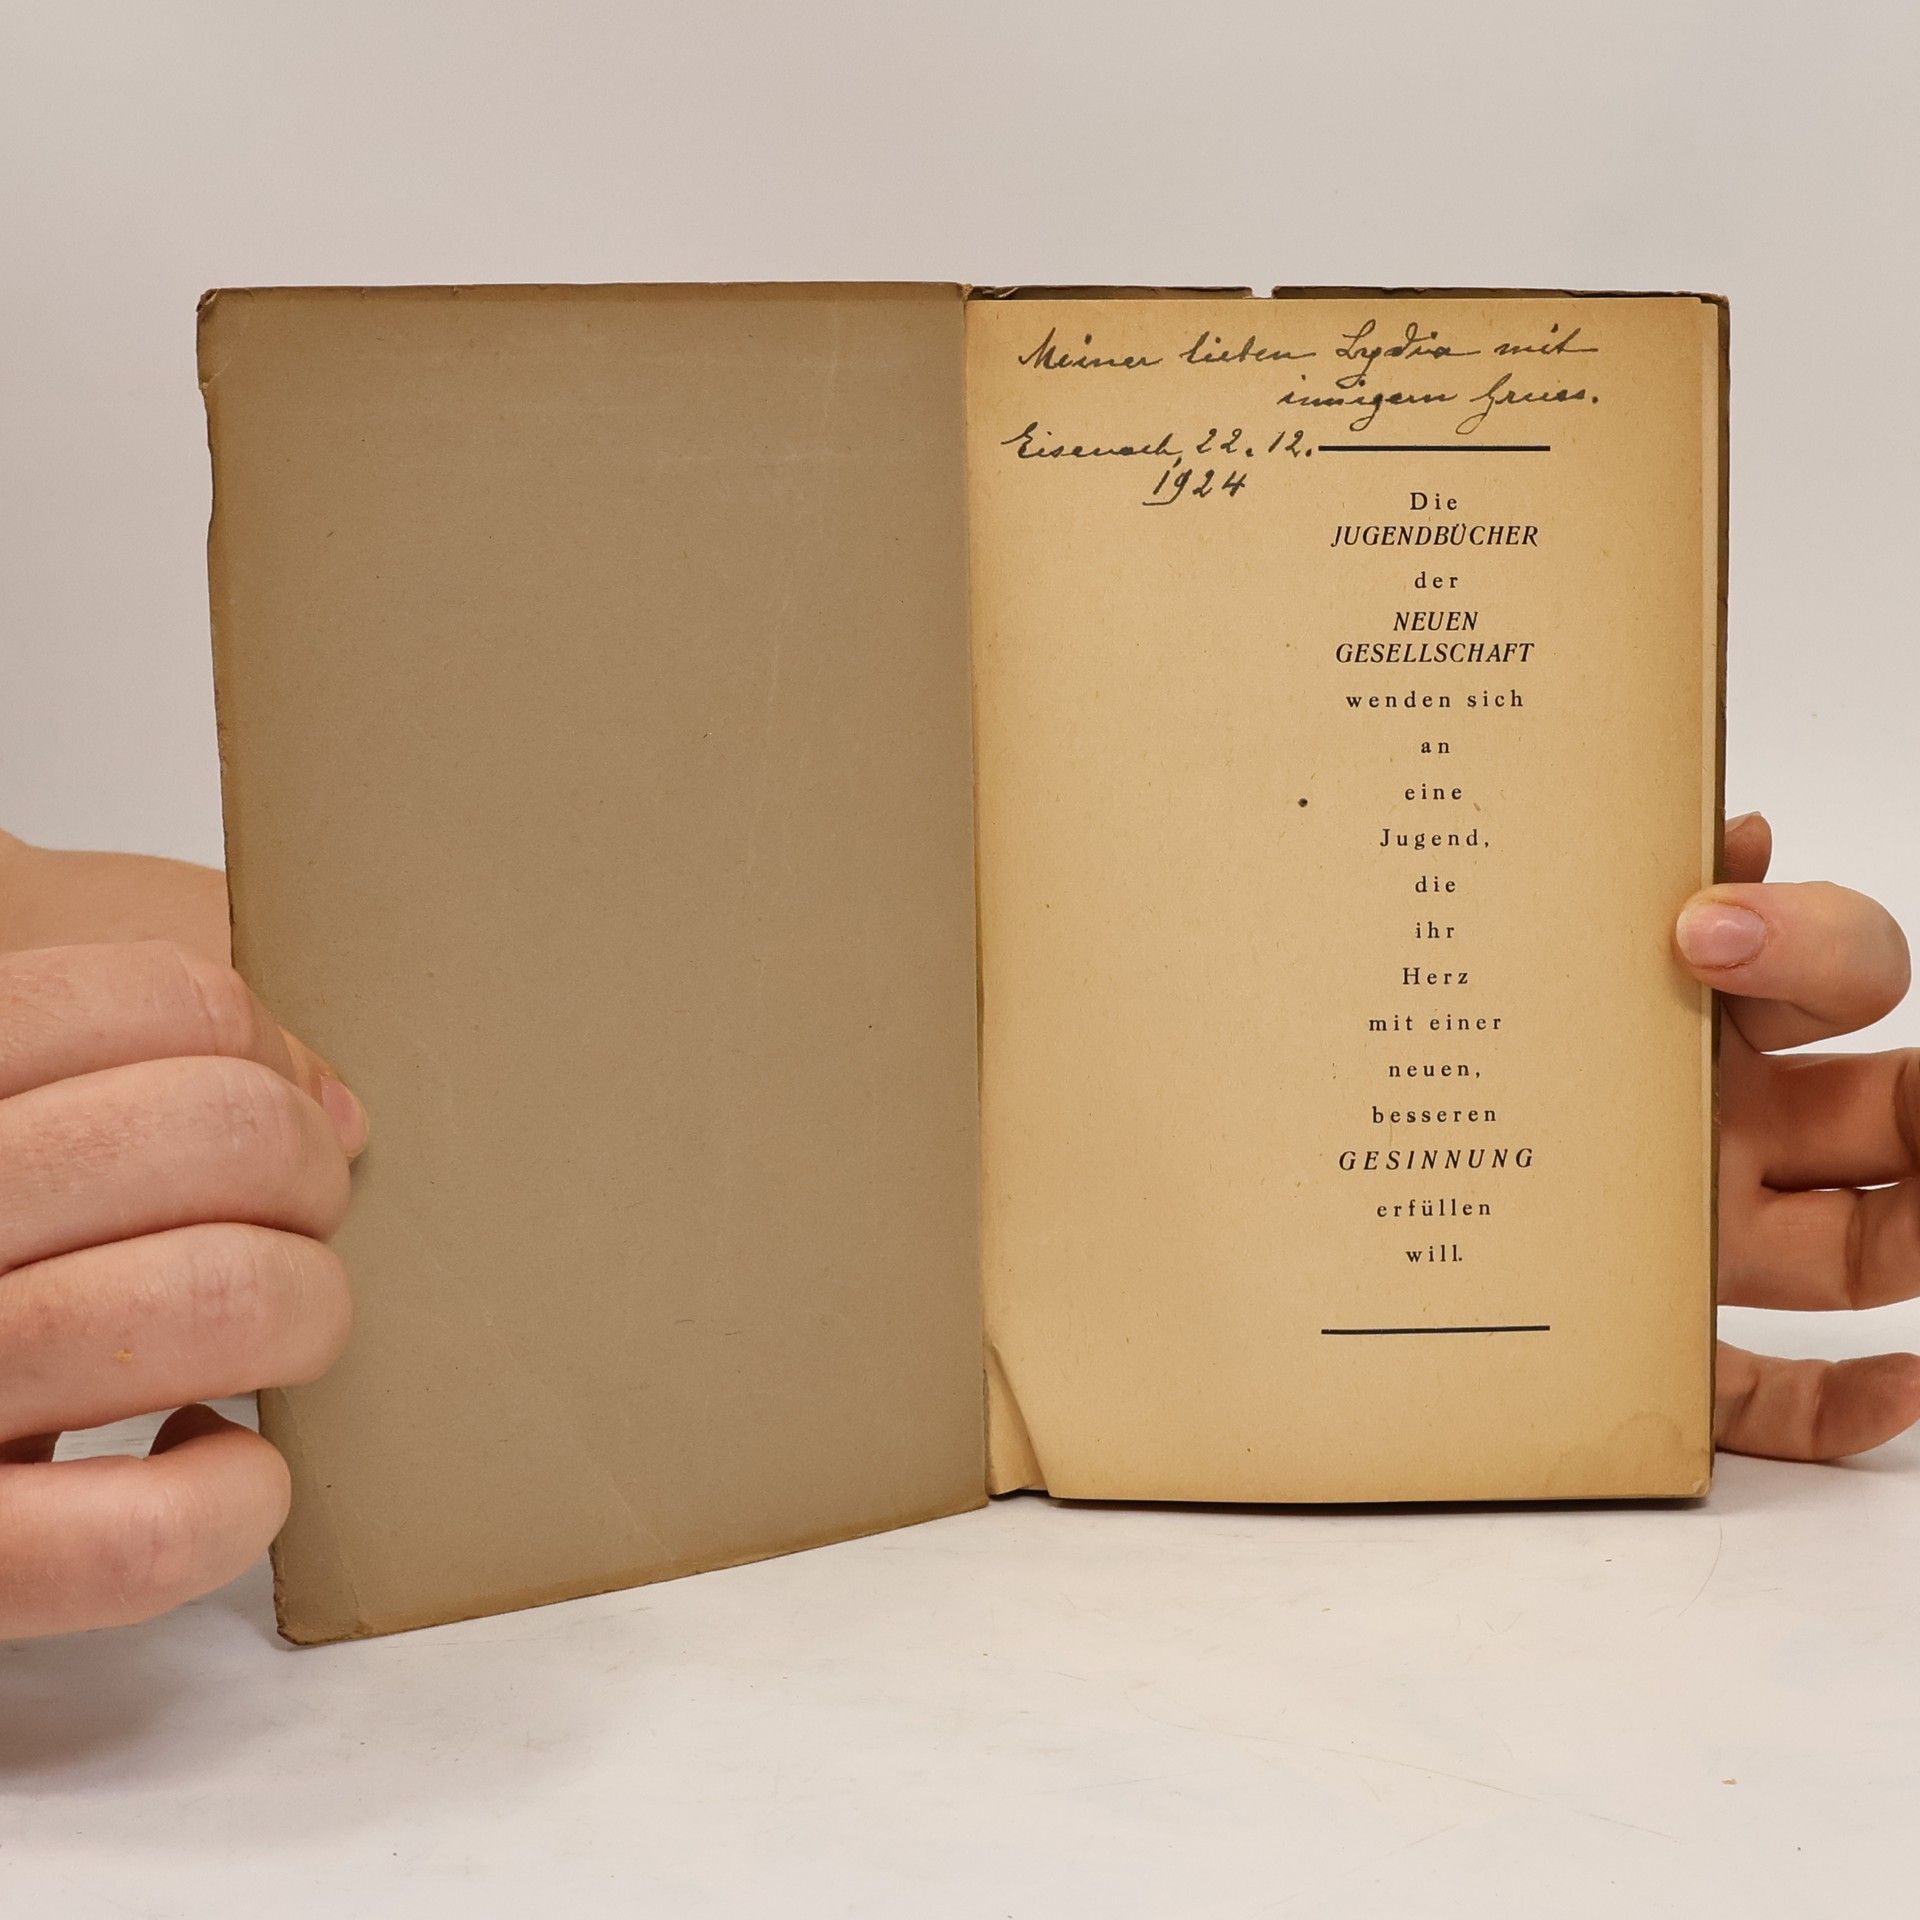 Meiner lieben Lydia mit
innigem Gruss.
Eisenach, 22. 12.
1924
Die
JUGENDBÜCHER
der
NEUEN
GESELLSCHAFT
wenden sich
an
eine
Jugend,
die
ihr
Herz
mit einer
neuen,
besseren
GESINNUNG
erfüllen
will.